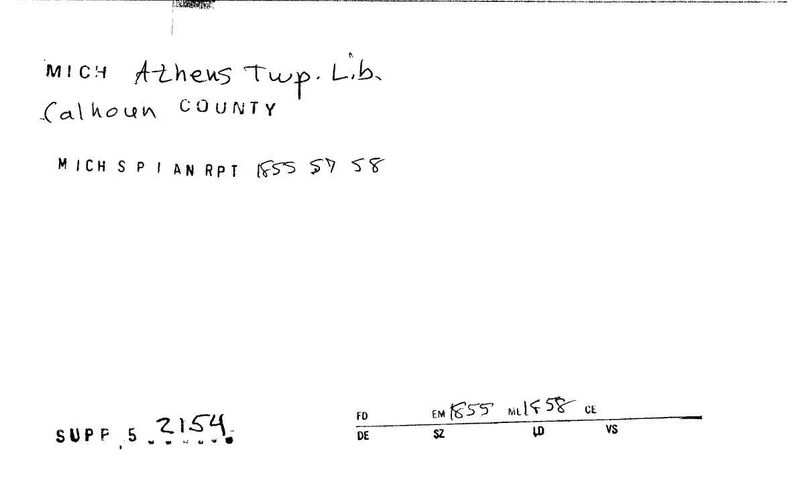 MICH Athens Twp. Lib.
Calhoun COUNTY
MICH S P I AN RPT 1855 57 58
SUPP 5 2154
FD EM 1855 ML 1858 CE
DE SZ LD VS